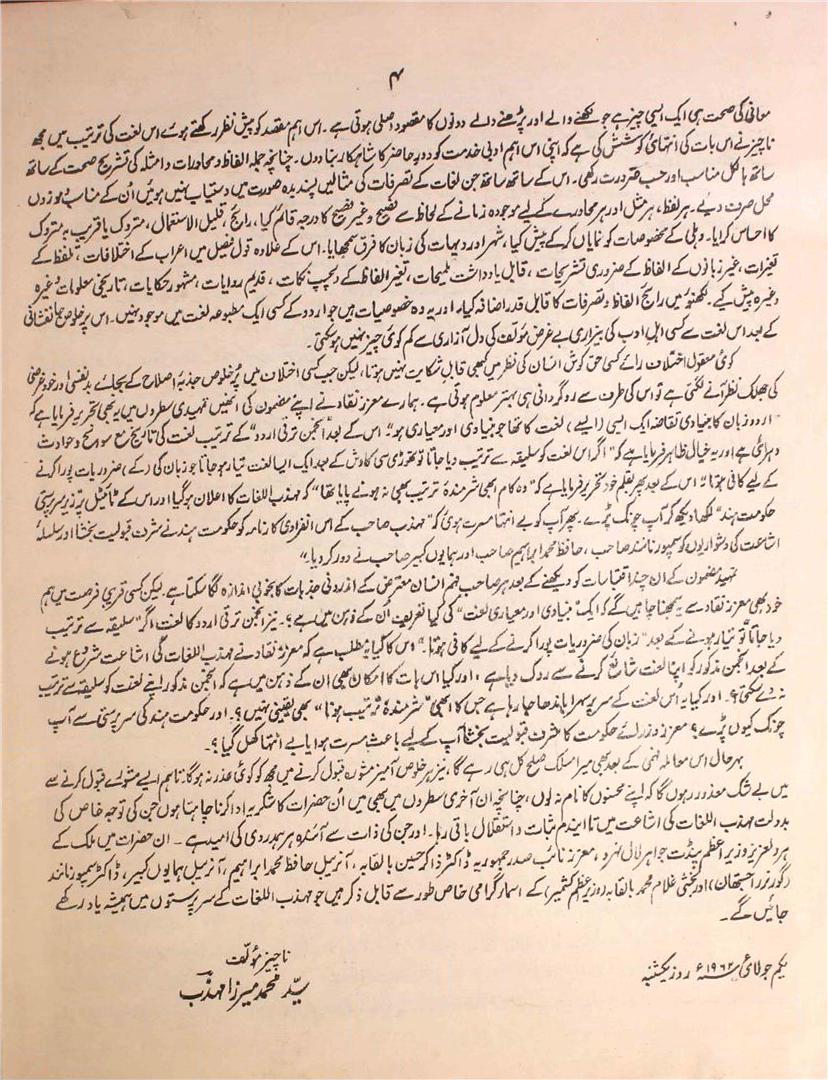 ۴
معانی کی صحت ہی ایک ایسی چیز ہے جو لکھنے والے اور پڑھنے والے دونوں کا مقصود اصلی ہوتی ہے۔ اس اہم مقصد کو پیش نظر رکھتے ہوئے اس لغت کی ترتیب میں مجھ
ناچیز نے اس بات کی انتہائی کوشش کی ہے کہ اپنی اس اہم ادبی خدمت کو دورِ حاضر کا شاہکار بنا دوں۔ چنانچہ جملہ الفاظ و محاورات و امثلہ کی تشریح صحت کے ساتھ
ساتھ بالکل مناسب اور حسب ضرورت رکھی۔ اس کے ساتھ ساتھ جن لغات کے تصرفات کی مثالیں پسندیدہ صورت میں دستیاب نہیں ہوئیں اُن کے مناسب و موزوں
محل صرف دیے۔ ہر لفظ، ہر مثل اور ہر محاورے کے لیے موجودہ زمانے کے لحاظ سے فصیح و غیر فصیح کا درجہ قائم کیا، رائج، قلیل الاستعمال، متروک یا قریب بہ متروک
کا احساس کرایا۔ دہلی کے مخصوصات کو نمایاں کر کے پیش کیا، شہر اور دیہات کی زبان کا فرق سمجھایا۔ اس کے علاوہ قول فیصل میں اعراب کے اختلافات، تلفظ کے
تغیرات، غیر زبانوں کے الفاظ کے ضروری تشریحات، قابل یادداشت تلمیحات، تغیر الفاظ کے دلچسپ نکات، قدیم روایات، مشہور حکایات، تاریخی معلومات وغیرہ
وغیرہ پیش کیے۔ لکھنؤ میں رائج الفاظ و تصرفات کا قابل قدر اضافہ کیا، اور یہ وہ خصوصیات ہیں جو اردو کے کسی ایک مطبوعہ لغت میں موجود نہیں۔ اس پر خلوص جانفشانی
کے بعد اس لغت سے کسی اہلِ ادب کی بیزاری بے غرض مؤلف کی دل آزاری سے کم کوئی چیز نہیں ہو سکتی۔
کوئی معقول اختلاف رائے کسی حق کوش انسان کی نظر میں کبھی قابل شکایت نہیں ہوتا، لیکن جب کسی اختلاف میں پُرخلوص جذبۂ اصلاح کے بجائے بدنفسی اور خود غرضی
کی جھلک نظر آنے لگتی ہے تو اس کی طرف سے روگردانی ہی بہتر معلوم ہوتی ہے۔ ہمارے معزز نقاد نے اپنے مضمون کی انھیں تمہیدی سطروں میں یہ بھی تحریر فرمایا ہے کہ
"اردو زبان کا بنیادی تقاضہ ایک ایسی (ایسے) لغت کا تھا جو بنیادی اور معیاری ہو" اس کے بعد "انجمن ترقی اردو" کے ترتیب لغت کی تاریخ مع سوانح و حوادث
دہرائی ہے اور یہ خیال ظاہر فرمایا ہے کہ "اگر اس لغت کو سلیقہ سے ترتیب دیا جاتا تو تھوڑی سی کاوش کے بعد ایک ایسا لغت تیار ہو جاتا جو زبان کی (کے) ضروریات پورا کرنے
کے لیے کافی ہوتا" اس کے بعد پھر بقلم خود تحریر فرمایا ہے کہ "وہ کام ابھی شرمندۂ ترتیب بھی نہ ہونے پایا تھا" کہ مہذب اللغات کا اعلان ہوگیا اور اس کے ٹائیٹل پر "زیر سرپرستی
حکومت ہند" لکھا دیکھ کر آپ چونک پڑے۔ پھر آپ کو بے انتہا مسرت ہوئی کہ "مہذب صاحب کے اس انفرادی کارنامہ کو حکومت ہند نے شرف قبولیت بخشا اور سلسلۂ
اشاعت کی دشواریوں کو سمپورنانند صاحب، حافظ محمد ابراہیم صاحب اور ہمایوں کبیر صاحب نے دور کر دیا۔"
تمہید مضمون کے ان چند اقتباسات کو دیکھنے کے بعد ہر صاحب فہم انسان معترض کے اندرونی جذبات کا بخوبی اندازہ لگا سکتا ہے۔ لیکن کسی قریبی فرصت میں ہم
خود بھی معزز نقاد سے یہ سمجھنا چاہیں گے کہ ایک "بنیادی اور معیاری لغت" کی کیا تعریف اُن کے ذہن میں ہے؟۔ نیز انجمن ترقی اردو کا لغت اگر "سلیقہ سے ترتیب
دیا جاتا" تو تیار ہونے کے بعد "زبان کی ضروریات پورا کرنے کے لیے کافی ہوتا۔" اس کا کیا مطلب ہے کہ معزز نقاد نے مہذب اللغات کی اشاعت شروع ہونے
کے بعد انجمن مذکور کو اپنا لغت شائع کرنے سے روک دیا ہے، اور کیا اس بات کا امکان بھی ان کے ذہن میں ہے کہ انجمن مذکور اپنے لغت کو سلیقہ سے ترتیب
نہ دے سکتی؟۔ اور کیا یہ اس لغت کے سر پر سہرا باندھا جا رہا ہے جس کا ابھی "شرمندۂ ترتیب ہونا" بھی یقینی نہیں؟۔ اور حکومت ہند کی سرپرستی سے آپ
چونک کیوں پڑے؟ معزز وزرائے حکومت کا شرف قبولیت بخشنا آپ کے لیے باعث مسرت ہوا یا بے انتہا کھل گیا؟۔
بہرحال اس معاملہ فہمی کے بعد بھی میرا مسلک صلح کل ہی رہے گا، نیز ہر خلوص آمیز مشورہ قبول کرنے میں مجھ کو کوئی عذر نہ ہوگا۔ تاہم ایسے مشورے قبول کرنے سے
میں بے شک معذور رہوں گا کہ اپنے محسنوں کا نام نہ لوں، چنانچہ ان آخری سطروں میں بھی میں اُن حضرات کا شکریہ ادا کرنا چاہتا ہوں جن کی توجہ خاص کی
بدولت مہذب اللغات کی اشاعت میں تا ایندم ثبات و استقلال باقی رہا۔ اور جن کی ذات سے آئندہ ہر ہمدردی کی امید ہے۔ ان حضرات میں ملک کے
ہر دلعزیز وزیر اعظم پنڈت جواہر لال نہرو، معزز نائب صدر جمہوریہ ڈاکٹر ذاکر حسین بالقابہ، آنریبل حافظ محمد ابراہیم، آنریبل ہمایوں کبیر، ڈاکٹر سمپورنانند
(گورنر راجستھان) اور بخشی غلام محمد بالقابہ (وزیر اعظم کشمیر) کے اسمار گرامی خاص طور سے قابل ذکر ہیں جو مہذب اللغات کے سرپرستوں میں ہمیشہ یاد رکھے
جائیں گے۔
ناچیز مؤلف
یکم جولائی ۱۹۶۲ء روز یکشنبہ
سیّد محمد میرزا مہذب